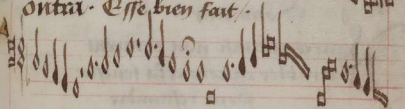 ontra. Esse bien fait.